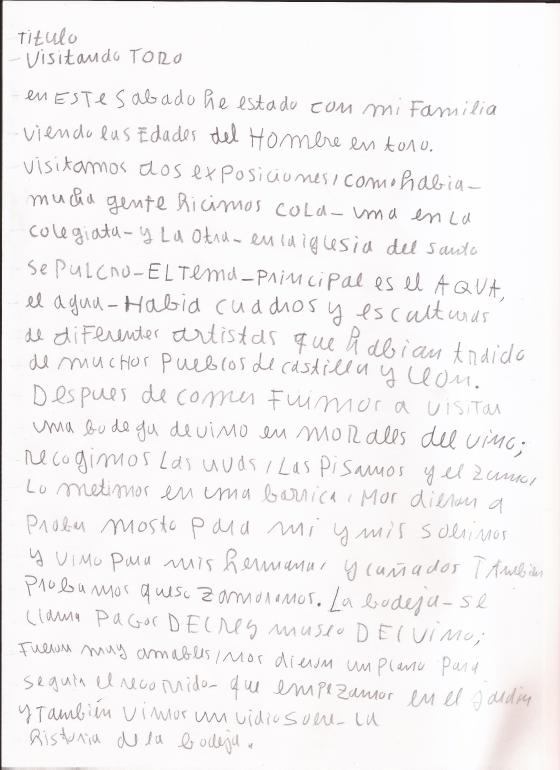 Titulo
- Visitando TORO
en ESTe Sabado he estado con mi Familia
viendo las Edades del Hombre en toro.
visitamos dos exposiciones, como habia-
mucha gente hicimos cola- una en la
colegiata- y La otra- en la iglesia del santo
sepulcro- EL Tema- principal es el AQUA,
el agua- Habia cuadros y esculturas
de diferentes artistas que habian traido
de muchos Pueblos de castilla y León.
Despues de comer Fuimos a visitar
una bodega de vino en MORales del vino;
recogimos Las uvas, Las Pisamos y el zumo,
Lo metimos en una barrica, Nos dieron a
Probar mosto para mi y mis sobrinos
y vino para mis hermanas y cuñados Tambien
Probamos queso zamorano. La bodeja- se
llama Pagos DEL rey museo DEL vino;
Fueron muy amables, Nos dieron un plano para
seguir el recorrido- que empezamos en el jardin
y También vimos un vidio sobre- La
historia de la bodeja.